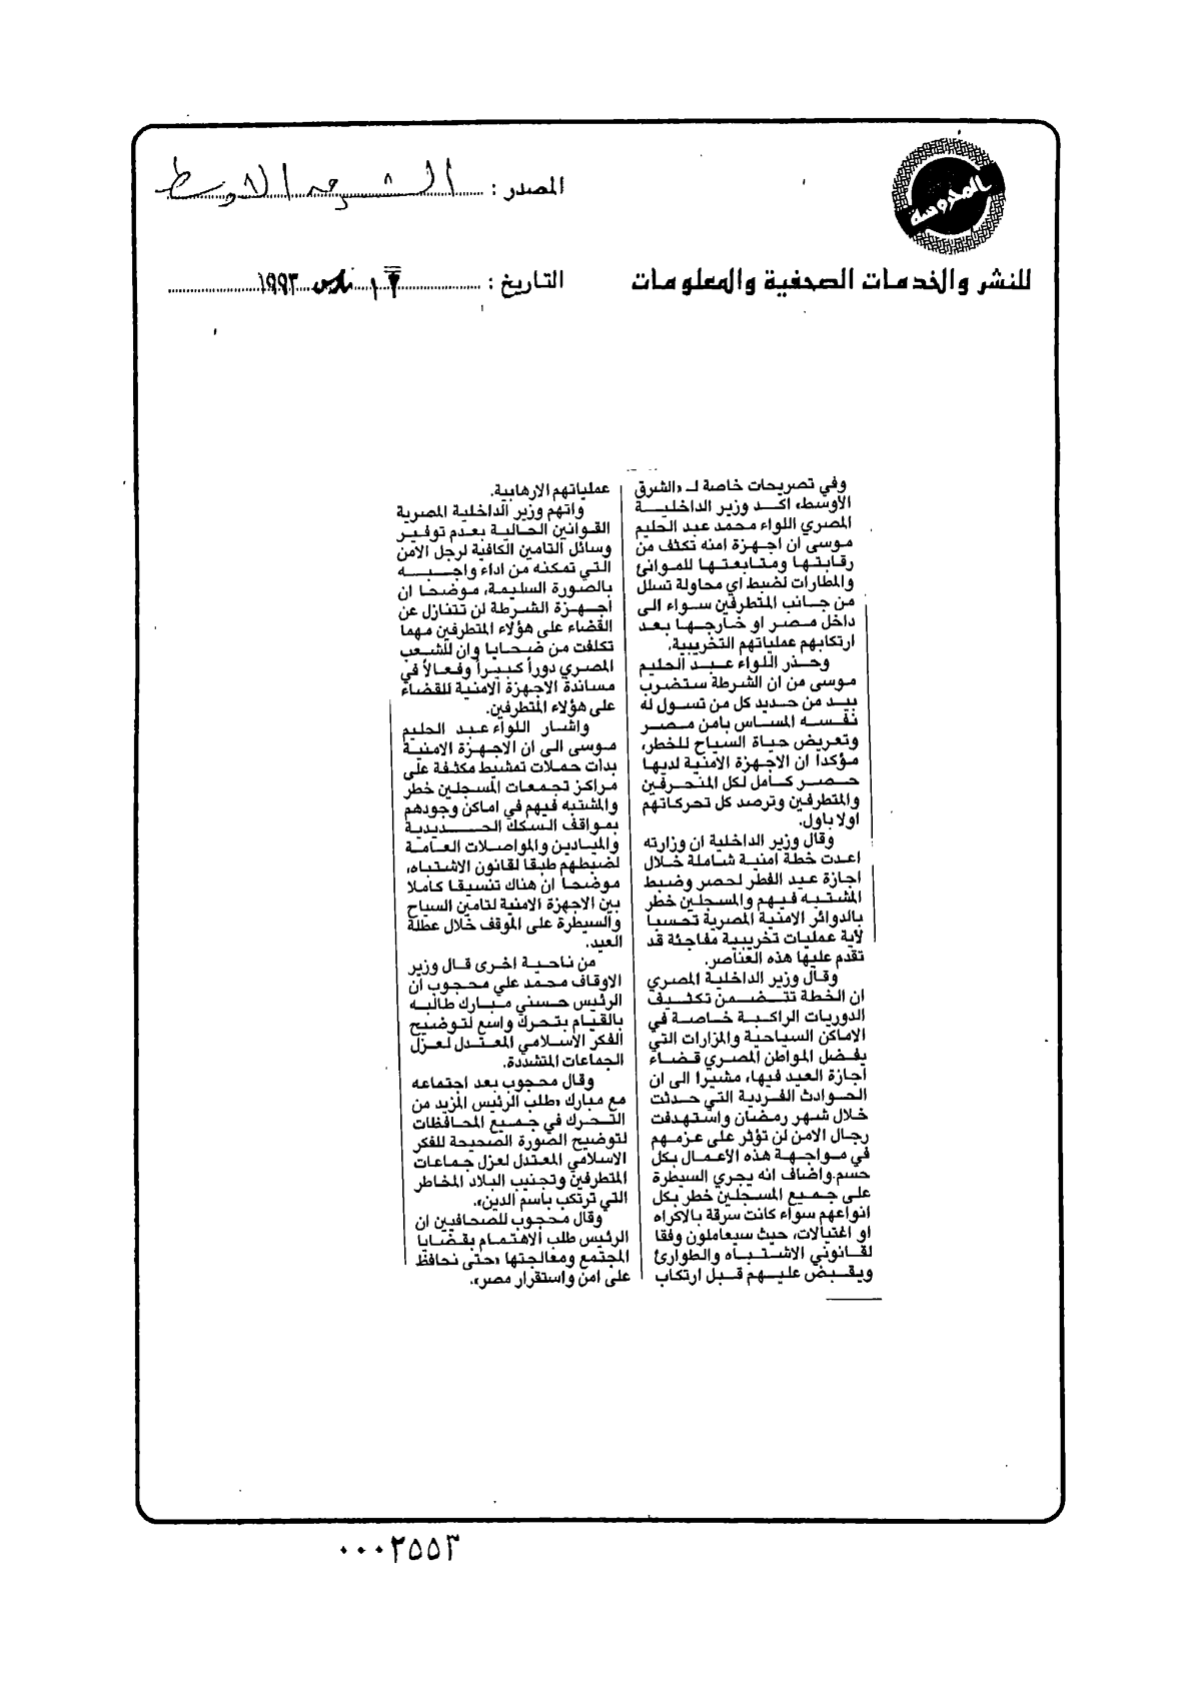 المحروسة
للنشر والخدمات الصحفية والمعلومات
المصدر : الشرق الاوسط
التاريخ : مارس ١٩٩٣
وفي تصريحات خاصة لـ «الشرق
الاوسط» اكد وزير الداخلية
المصري اللواء محمد عبد الحليم
موسى ان اجهزة امنه تكثف من
رقابتها ومتابعتها للموانئ
والمطارات لضبط اي محاولة تسلل
من جانب المتطرفين سواء الى
داخل مصر او خارجها بعد
ارتكابهم عملياتهم التخريبية.
وحذر اللواء عبد الحليم
موسى من ان الشرطة ستضرب
بيد من حديد كل من تسول له
نفسه المساس بامن مصر
وتعريض حياة السياح للخطر،
مؤكدا ان الاجهزة الامنية لديها
حصر كامل لكل المنحرفين
والمتطرفين وترصد كل تحركاتهم
اولا باول.
وقال وزير الداخلية ان وزارته
اعدت خطة امنية شاملة خلال
اجازة عيد الفطر لحصر وضبط
المشتبه فيهم والمسجلين خطر
بالدوائر الامنية المصرية تحسبا
لأية عمليات تخريبية مفاجئة قد
تقدم عليها هذه العناصر.
وقال وزير الداخلية المصري
ان الخطة تتضمن تكثيف
الدوريات الراكبة خاصة في
الاماكن السياحية والمزارات التي
يفضل المواطن المصري قضاء
أجازة العيد فيها، مشيرا الى ان
الحوادث الفردية التي حدثت
خلال شهر رمضان واستهدفت
رجال الامن لن تؤثر على عزمهم
في مواجهة هذه الاعمال بكل
حسم. واضاف انه يجري السيطرة
على جميع المسجلين خطر بكل
انواعهم سواء كانت سرقة بالاكراه
او اغتيالات، حيث سيعاملون وفقا
لقانوني الاشتباه والطوارئ
ويقبض عليهم قبل ارتكاب
عملياتهم الارهابية.
واتهم وزير الداخلية المصرية
القوانين الحالية بعدم توفير
وسائل التامين الكافية لرجل الامن
التي تمكنه من اداء واجبه
بالصورة السليمة، موضحا ان
أجهزة الشرطة لن تتنازل عن
القضاء على هؤلاء المتطرفين مهما
تكلفت من ضحايا وان للشعب
المصري دوراً كبيراً وفعالاً في
مساندة الاجهزة الامنية للقضاء
على هؤلاء المتطرفين.
واشار اللواء عبد الحليم
موسى الى ان الاجهزة الامنية
بدات حملات تمشيط مكثفة على
مراكز تجمعات المسجلين خطر
والمشتبه فيهم في اماكن وجودهم
بمواقف السكك الحديدية
والميادين والمواصلات العامة
لضبطهم طبقا لقانون الاشتباه،
موضحا ان هناك تنسيقا كاملا
بين الاجهزة الامنية لتامين السياح
والسيطرة على الموقف خلال عطلة
العيد.
من ناحية اخرى قال وزير
الاوقاف محمد علي محجوب أن
الرئيس حسني مبارك طالبه
بالقيام بتحرك واسع لتوضيح
الفكر الاسلامي المعتدل لعزل
الجماعات المتشددة.
وقال محجوب بعد اجتماعه
مع مبارك «طلب الرئيس المزيد من
التحرك في جميع المحافظات
لتوضيح الصورة الصحيحة للفكر
الاسلامي المعتدل لعزل جماعات
المتطرفين وتجنيب البلاد المخاطر
التي ترتكب باسم الدين».
وقال محجوب للصحافيين ان
الرئيس طلب الاهتمام بقضايا
المجتمع ومعالجتها «حتى نحافظ
على امن واستقرار مصر».
٠٠٠٢٥٥٣